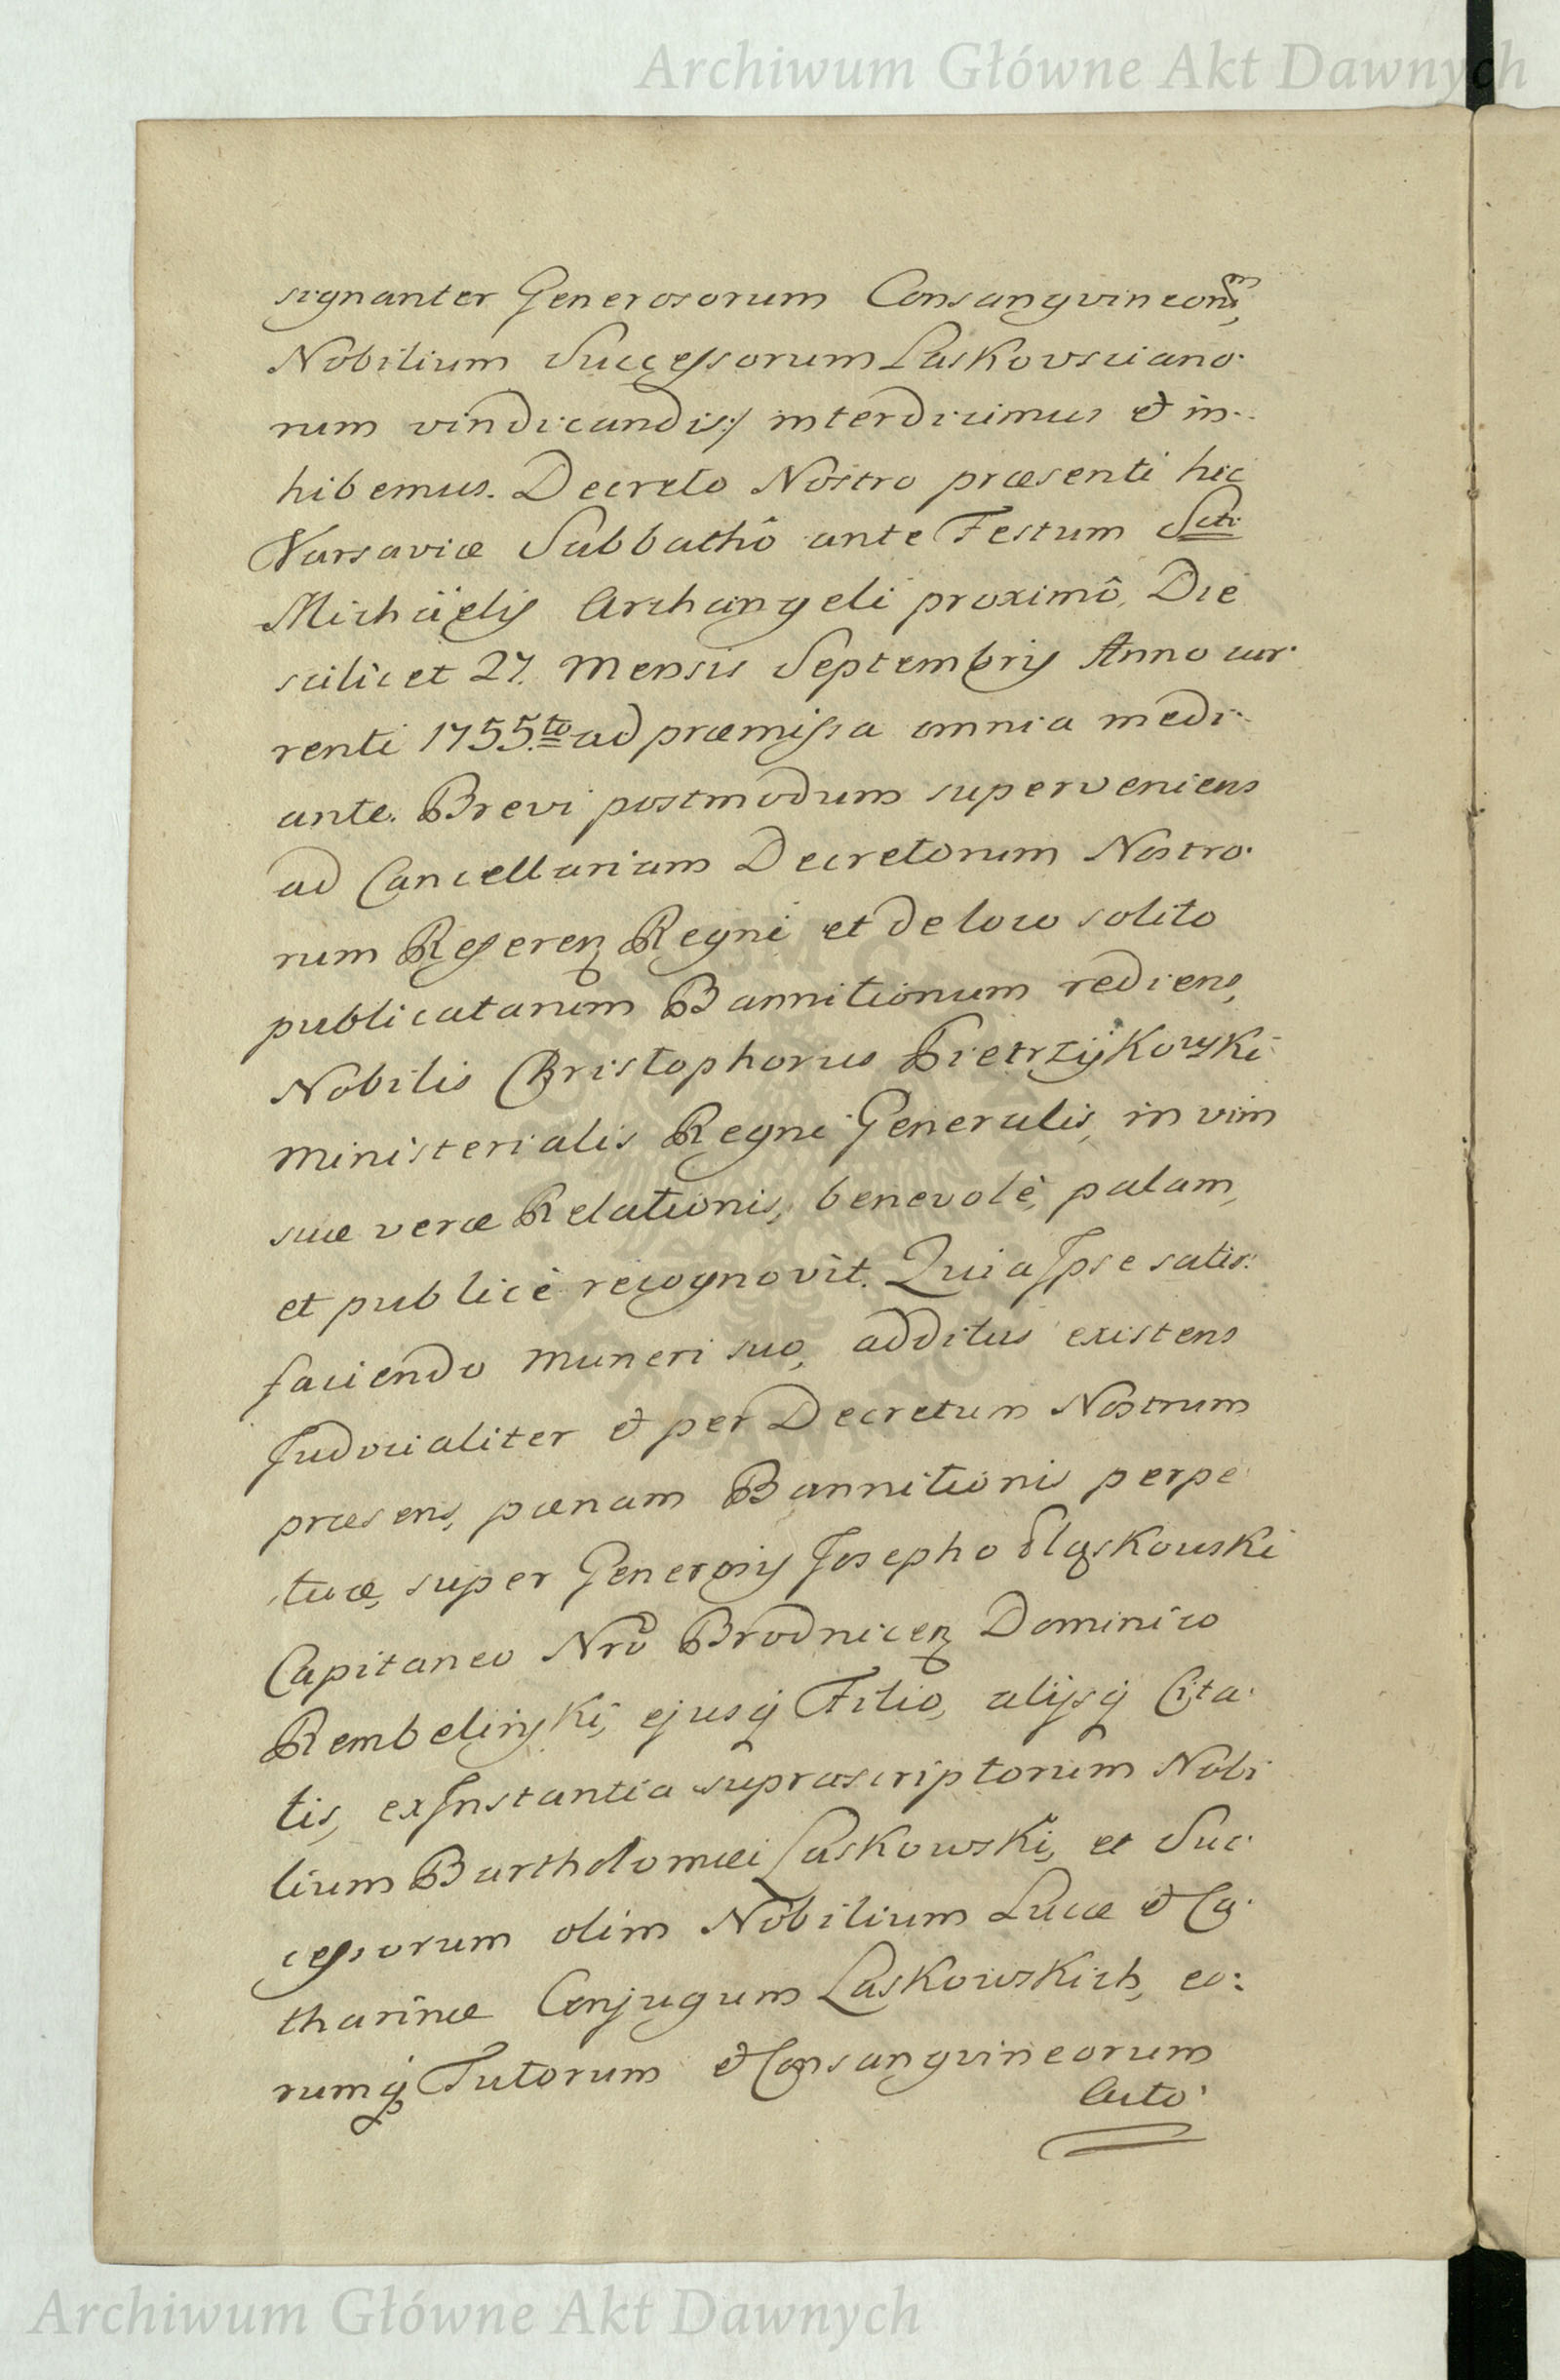 Archiwum Główne Akt Dawnych
signanter Generosorum Consangvineorum,
Nobilium Successorum Laskovsciano-
rum vindicandis:/ interdicimus et in-
hibemus. Decreto Nostro præsenti hic
Varsaviæ Sabbathô ante Festum Scti
Michäelis Archangeli proximô, Die
scilicet 27. Mensis Septembris Anno cur-
renti 1755.to ad præmissa omnia medi-
ante. Brevi postmodum superveniens
ad Cancellariam Decretorum Nostro-
rum Referen Regni et de loco solito
publicatarum Bannitionum rediens,
Nobilis Christophorus Pietrzÿkowski
Ministerialis Regni Generalis, in vim
suæ veræ Relationis, benevolè, palam,
et publicè recognovit. Quia Ipse satis-
faciendo muneri suo, additus existens
Judicialiter et per Decretum Nostrum
præsens, pœnam Bannitionis perpe-
tuæ, super Generosis Josepho Pląskowski
Capitaneo Nrô Brodnicen Dominico
Rembeliński, ejusq Filio, alijsq Cita-
tis, ex Instantia suprascriptorum Nobi
lium Bartholomæi Laskowski, et Suc-
cessorum olim Nobilium Lucæ et Ca-
tharinæ Conjugum Laskowskich, eo-
rumq Tutorum et Consangvineorum
Acto-
Archiwum Główne Akt Dawnych